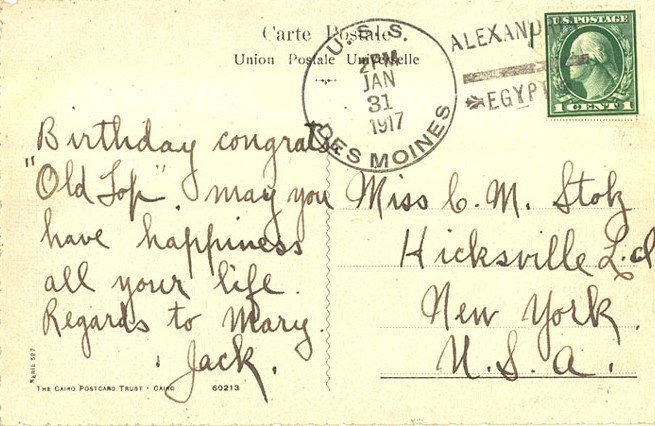 Carte Postale
Union Postale Universelle
U.S.S.
2PM
JAN
31
1917
DES MOINES
ALEXANDR
EGYPT
U.S. POSTAGE
1 CENT 1
Birthday congrats,
"Old Top". may you
have happiness
all your life.
Regards to Mary.
Jack.
Miss C. M. Stolz
Hicksville L.I
New York.
U.S.A.
THE CAIRO POSTCARD TRUST - CAIRO
60213